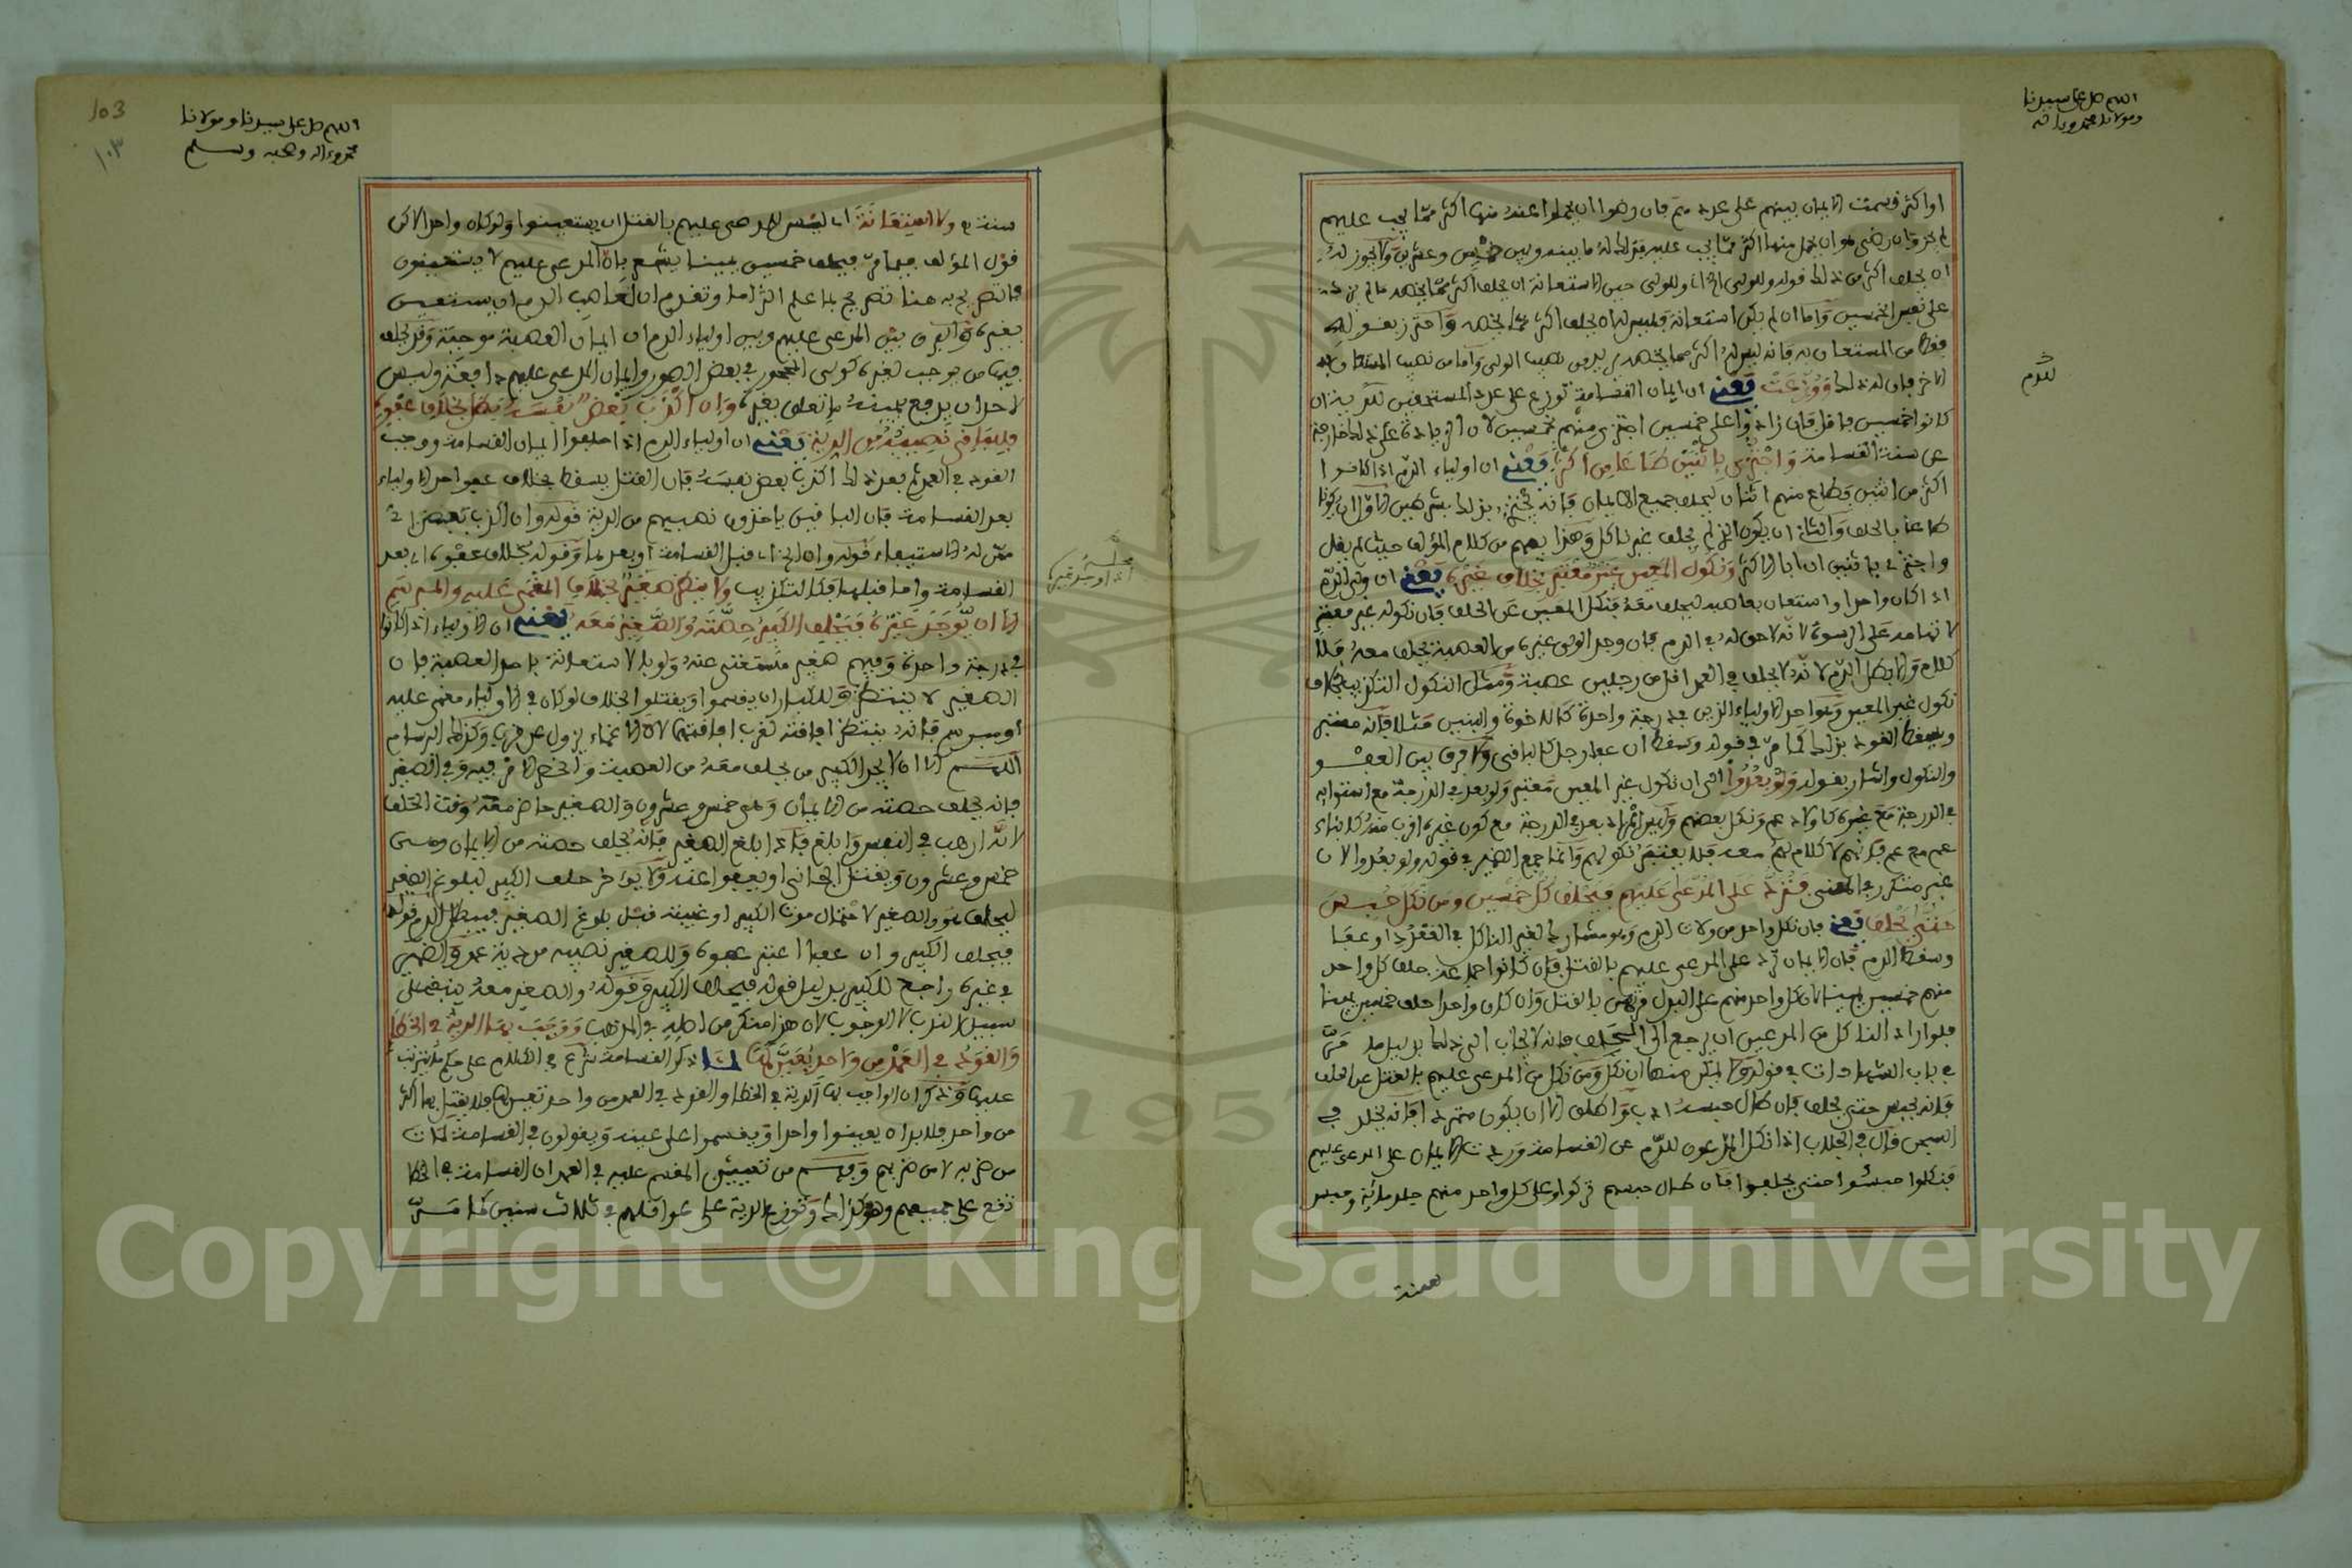 اللهم صل على سيدنا
ومولانا محمد وءاله
او اكثر قسمت الايمان بينهم على عددهم فان وهوا ان يحملوا عنه منها اكثر مما يجب عليهم
لم يجز وان رضي هو ان يحمل منها اكثر مما يجب عليه فذلك له ما بينه وبين خمس وعشرين ولا يجوز له
ان يحلف اكثر من ذلك قوله وللولي الخ اي وللولي حين الاستعانة ان يحلف اكثر مما يخصه ما لم يزد
على نصف الخمسين واما ان لم يكن استعانة فليس له ان يحلف اكثر مما يخصه واحترز بقوله
فقط من المستعان به فانه ليس له اكثر مما يخصه
الاخر فان له ذلك ووزعت يعني ان ايمان القسامة توزع على عدد المستحقين للدية ان
كانوا خمسين فاقل فان زادوا على خمسين اجتزي منهم بخمسين لان الزيادة على ذلك خارجة
عن سنة القسامة واجتزي باثنين طاعا من اكثر يعني ان اولياء الدم اذا كانوا
اكثر من اثنين وطاع منهم اثنان ليحلف جميع الايمان فانه يجتزى بذلك بشرطين الاول ان يكونا
طاعا بالحلف والثاني ان يكون الذي لم يحلف غير ناكل وهذا يفهم من كلام المؤلف حيث لم يقل
واجتزي باثنين ان ابا الاكثر ونكول المعين غير معتبر بخلاف غيره يعني ان ولي الدم
اذا كان واحدا واستعان بعاصبه ليحلف معه فنكل المعين عن الحلف فان نكوله غير معتبر
لاتهامه على الرسوة لانه لا حق له في الدم فان وجد الولي غيره من العصبة يحلف معه فلا
كلام والا بطل الدم لانه لا يحلف في العمد اقل من رجلين عصبة ومثل النكول التكذيب بخلاف
نكول غير المعين وهو احد الاولياء الذين في درجة واحدة كالاخوة والبنين مثلا فانه معتبر
ويسقط القود بذلك كما مر في قوله وسقط ان عفا رجل كالباقي ولا فرق بين العفو
والنكول واشار بقوله ولو بعدوا الى ان نكول غير المعين معتبر ولو بعد في الدرجة مع استوائه
في الدرجة مع غيره كاولاد عم ونكل بعضهم وليس المراد بعد في الدرجة مع كون غيره اقرب منه كابناء
عم مع عم فانهم لا كلام لهم معه فلا يعتبر نكولهم وانما جمع الضمير في قوله ولو بعدوا لان
غير متكرر في المعنى فترد على المدعى عليهم فيحلف كل خمسين ومن نكل حبس
حتى يحلف يعني فان نكل واحد من ولات الدم وهو مشارك لغير الناكل في القعدد او عفا
وسقط الدم فان الايمان ترد على المدعى عليهم بالقتل فان كانوا جماعة حلف كل واحد
منهم خمسين يمينا لان كل واحد منهم على البدل متهم بالقتل وان كان واحدا حلف خمسين يمينا
فلو اراد الناكل من المدعين ان يرجع الى الحلف فانه لا يجاب الى ذلك بدليل ما مر
في باب الشهادات في قوله ولا يمكن منها ان نكل ومن نكل من المدعى عليهم بالقتل عن الحلف
فانه يحبس حتى يحلف فان طال حبسه ادب واطلق الا ان يكون متمردا فانه يخلد في
السجن قال في الجلاب اذا نكل المدعون للدم عن القسامة وردت الايمان على المدعى عليهم
فنكلوا حبسوا حتى يحلفوا فان طال حبسهم تركوا وعلى كل واحد منهم جلد مائة وحبس
للدم
سنة
اللهم صل على سيدنا ومولانا
محمد وءاله وصحبه وسلم
103
١٠٣
سنة ولا استعانة اي ليس للمدعى عليهم بالقتل ان يستعينوا ولو كان واحدا لاكن
قول المؤلف فيما مر فيحلف خمسين يمينا يشعر بان المدعى عليهم لا يستعينون
فاتصريحه هنا تصريح بما علم التزاما وتقدم ان لعاصب الدم ان يستعين
بغيره والفرق بين المدعى عليهم وبين اولياء الدم ان ايمان العصبة موجبة وقد يحلف
فيها من يوجب لغيره كولي المحجور في بعض الصور وايمان المدعى عليهم دافعة وليس
لاحد ان يدفع بيمينه ما تعلق بغيره وان اكذب بعض نفسه بطل بخلاف عفوه
فللباقي نصيبه من الدية يعني ان اولياء الدم اذا حلفوا ايمان القسامة ووجب
القود في العمد ثم بعد ذلك اكذب بعض نفسه فان القتل يسقط بخلاف عفو احد الاولياء
بعد القسامة فان الباقين ياخذون نصيبهم من الدية قوله وان اكذب بعض اي
ممن له الاستيفاء قوله وان الخ اي قبل القسامة او بعدها وقوله بخلاف عفوه اي بعد
القسامة واما قبلها فكالتكذيب ولا ينتظر صغير بخلاف المغمى عليه والمبرسم
الا ان يوجد غيره فيحلف الكبير حصته والصغير معه يعني ان الاولياء اذا كانوا
في درجة واحدة وفيهم صغير مستغنى عنه ولو بالاستعانة باحد العصبة فان
الصغير لا ينتظر وللكبار ان يقسموا ويقتلوا بخلاف لو كان في الاولياء مغمى عليه
او مبرسم فانه ينتظر افاقته لقرب افاقتهما لان الاغماء يزول عن قرب وكذلك البرسام
اللهم الا ان لا يجد الكبير من يحلف معه من العصبة وانحصر الامر فيه وفي الصغير
فانه يحلف حصته من الايمان وهي خمس وعشرون والصغير حاضر معه وقت الحلف
لانه ارهب في النفس وابلغ فاذا بلغ الصغير فانه يحلف حصته من الايمان وهي
خمس وعشرون ويقتل الجاني او يعفوا عنه ولا يوخر حلف الكبير لبلوغ الصغير
ليحلف هو والصغير لاحتمال موت الكبير او غيبته قبل بلوغ الصغير فيبطل الدم قوله
فيحلف الكبير وان عفا اعتبر عفوه وللصغير نصيبه من دية عمد والضمير
في غيره راجع للكبير بدليل قوله فيحلف الكبير وقوله والصغير معه ينبغي على
سبيل الندب لا الوجوب لان هذا منكر من اصله في المذهب ووجب بها الدية في الخطا
والقود في العمد من واحد يعين لها لما ذكر القسامة شرع في الكلام على ما يترتب
عليها وذكر ان الواجب بها الدية في الخطا والقود في العمد من واحد تعين لها فلا يقتل بها اكثر
من واحد فلا بد ان يعينوا واحدا ويقسموا على عينه ويقولون في القسامة لمات
من ضربه لا من ضربهم وفهم من تعيين المقسم عليه في العمد ان القسامة في الخطا
تقع على جميعهم وهو كذلك وتوزع الدية على عواقلهم في ثلاث سنين كما مر
Copyright © King Saud University
1957